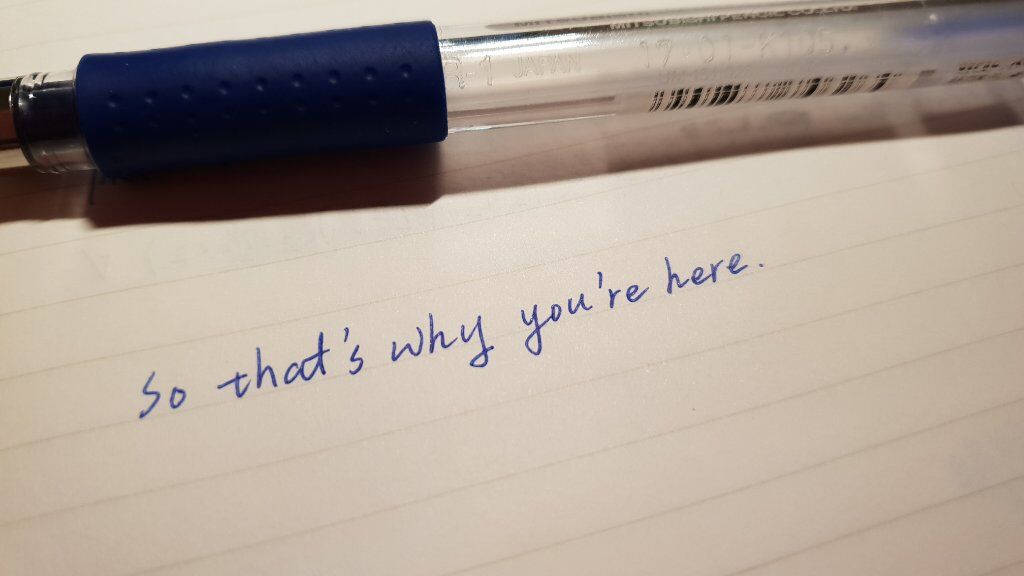 MITSUBISHI PENCIL CO., LTD
R-1 JAPAN 17·01-K105.
So that's why you're here.